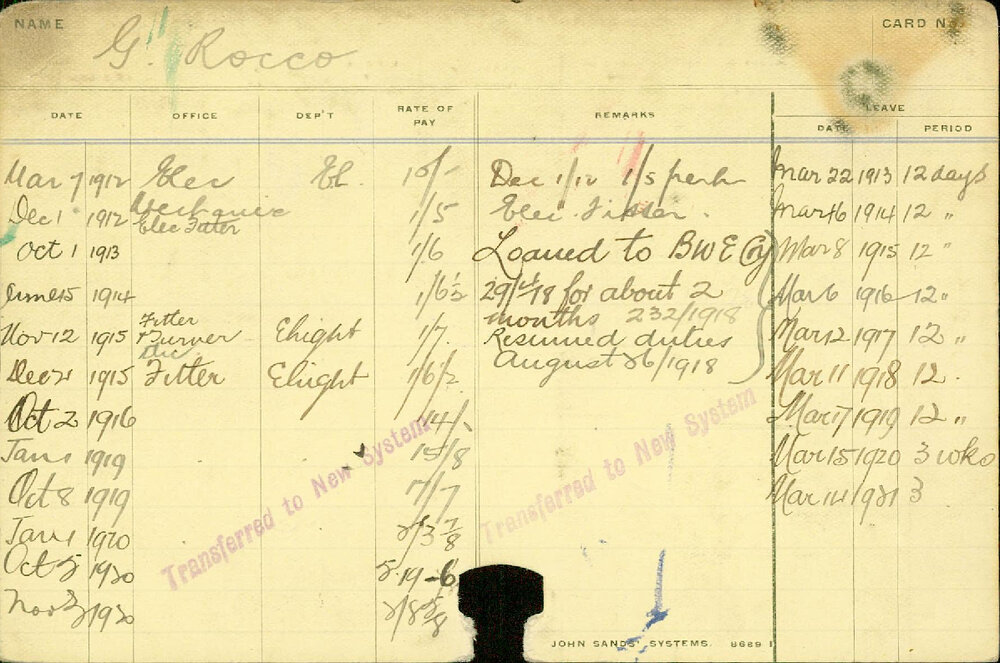 NAME G. Rocco CARD NO.
DATE OFFICE DEP'T RATE OF PAY REMARKS LEAVE
DATE PERIOD
Mar 7 1912 Elec El. 10/- Dec 1/12 1/5 perh Mar 22 1913 12 days
Mechanic
Dec 1 1912 Elec Fitter 1/5 Elec. Fitter. Mar 16 1914 12 "
Oct 1 1913 1/6 Loaned to BWE Coy Mar 8 1915 12 "
June 15 1914 1/6½ 29/4/18 for about 2 Mar 6 1916 12 "
months 232/1918
Fitter
Nov 12 1915 & Turner 1/7. Elight Resumed duties Mar 12 1917 12 "
August 26/1918
Dec 21 1915 Fitter Elight 1/6½ Mar 11 1918 12.
Oct 2 1916 14/- Mar 17 1919 12 "
Jan 1 1919 15/8 Mar 15 1920 3 wks
Oct 8 1919 17/7 Mar 14 1921 3
Jan 1 1920
Oct 1920 5.19-6
Nov 1920
Transferred to New System
Transferred to New System
JOHN SANDS' SYSTEMS. 8689